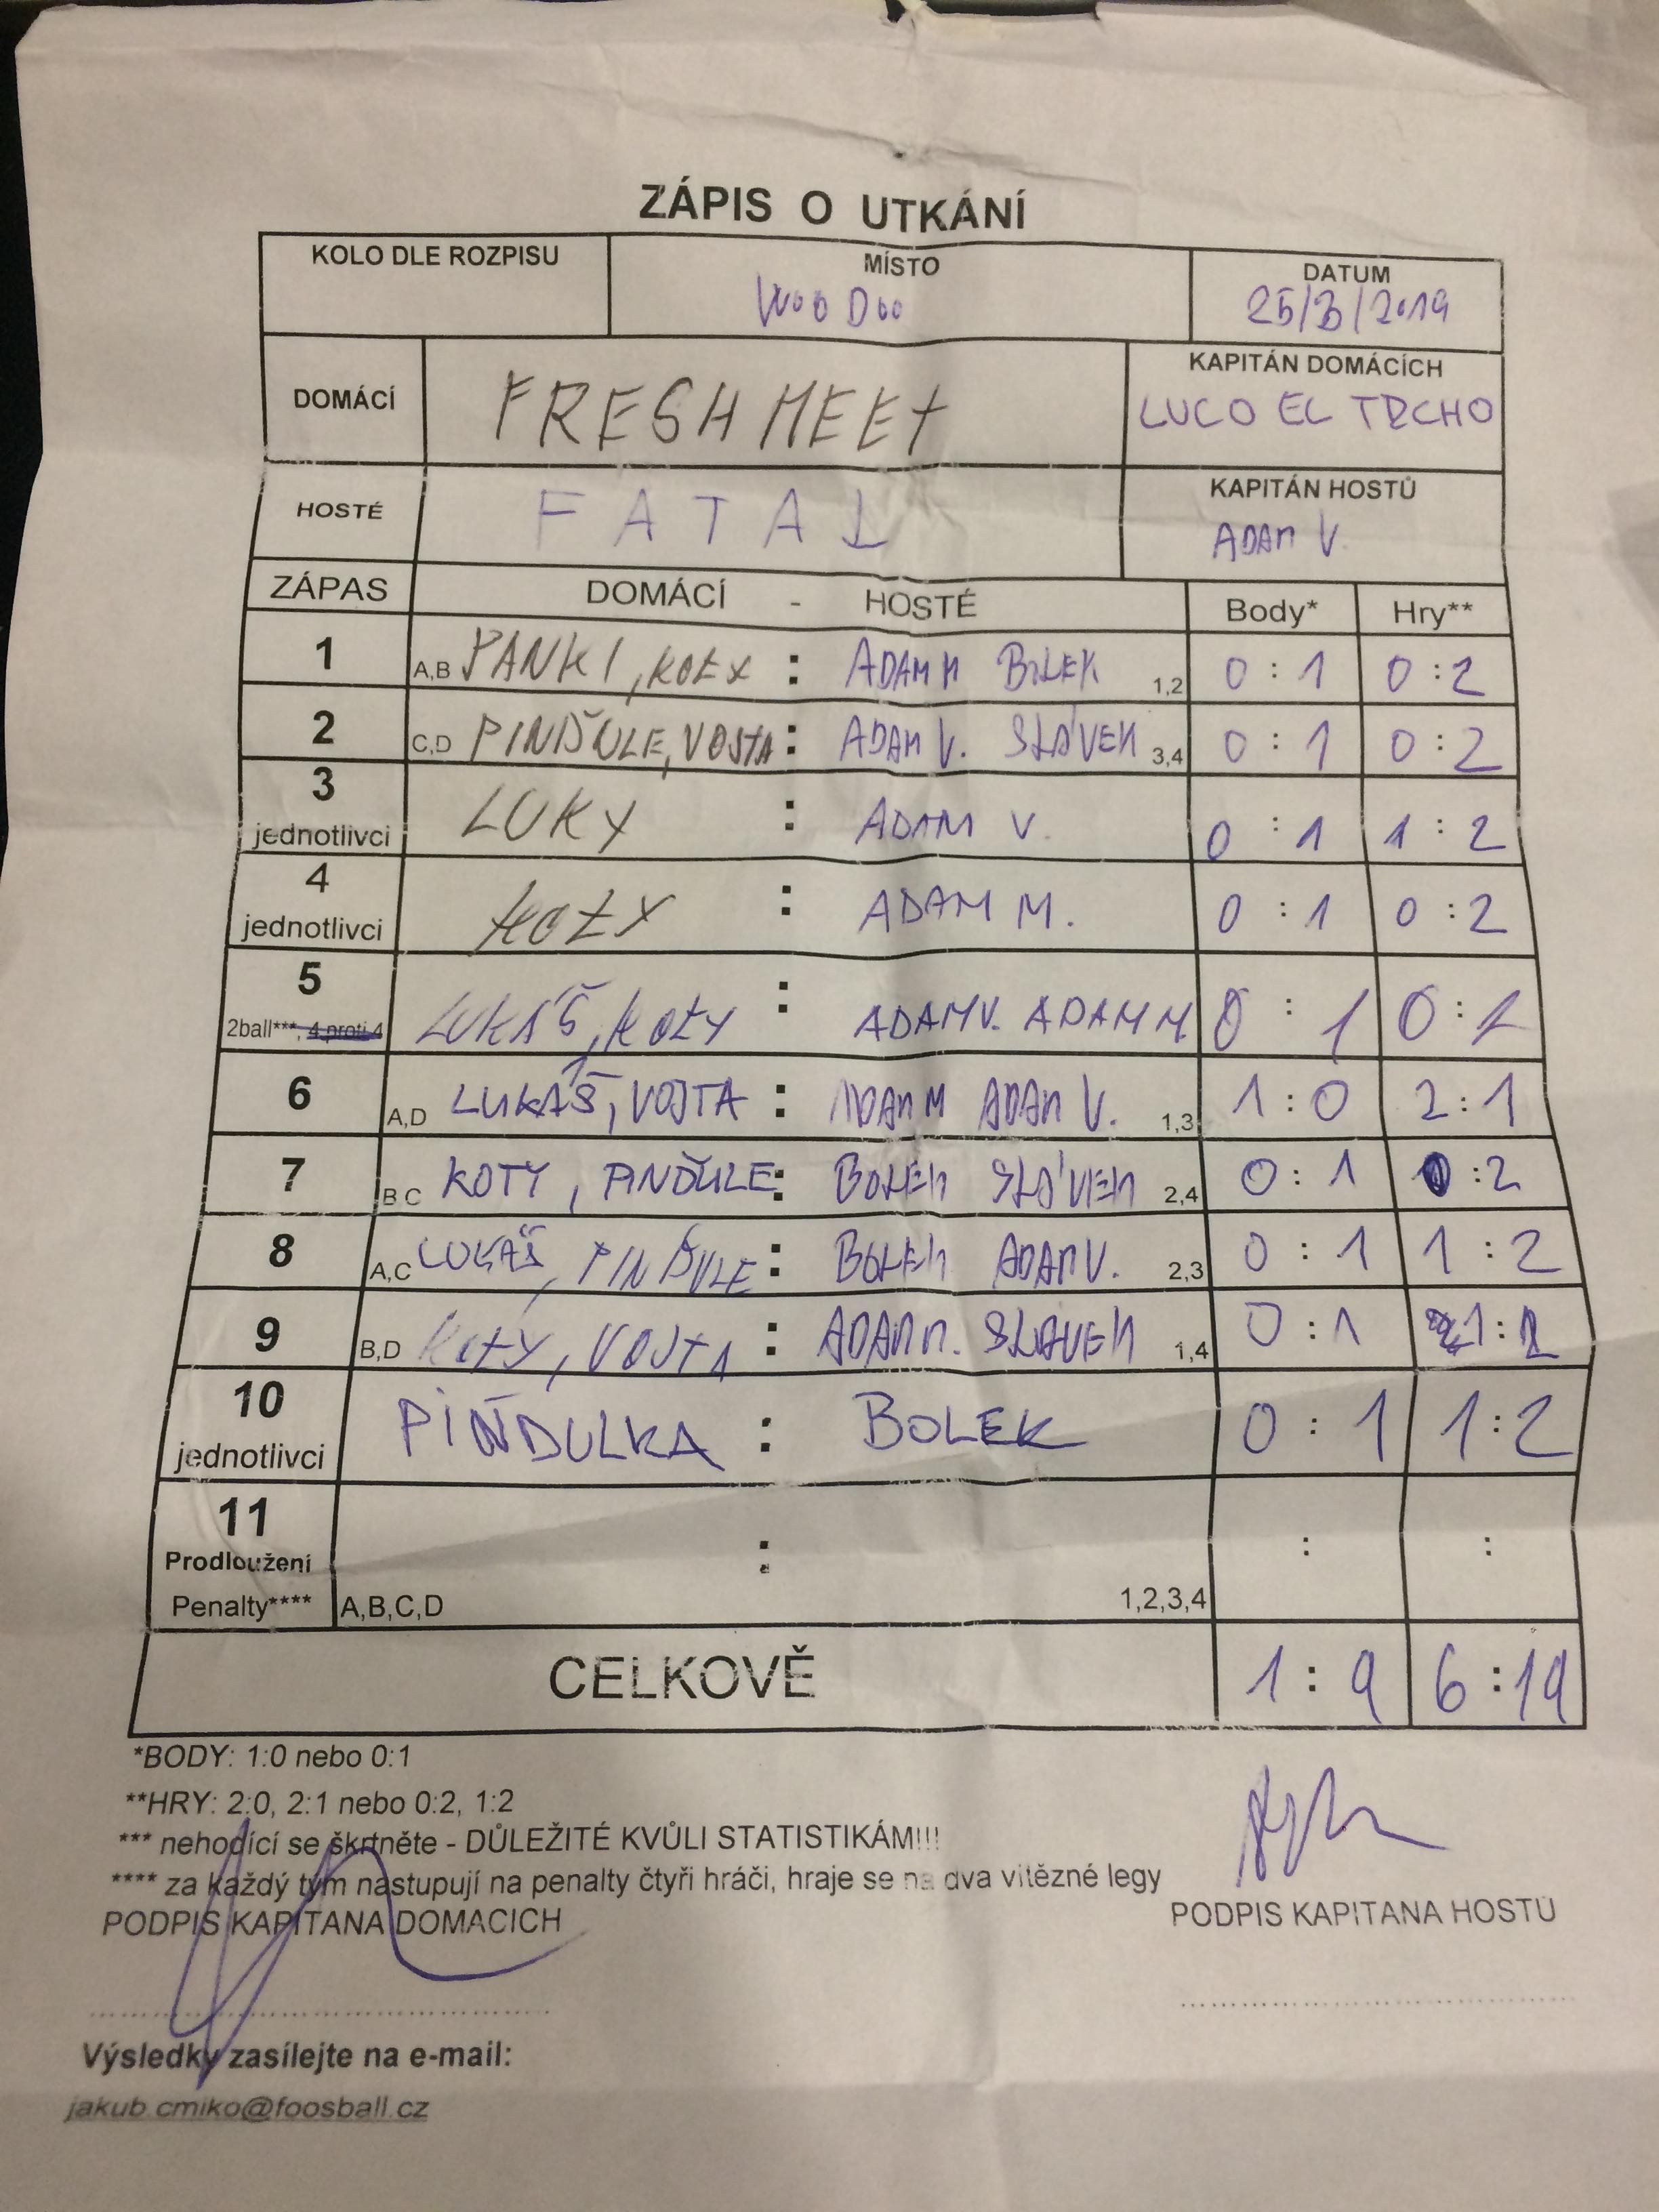 ZÁPIS O UTKÁNÍ
KOLO DLE ROZPISU MÍSTO DATUM
Woo Doo 25/3/2019
DOMÁCÍ FRESH MEET KAPITÁN DOMÁCÍCH
LUCO EL TRCHO
HOSTÉ FATAL KAPITÁN HOSTŮ
ADAM V.
ZÁPAS DOMÁCÍ - HOSTÉ Body* Hry**
1 A,B PANKI, KOTY : ADAM M BOLEK 1,2 0 : 1 0 : 2
2 C,D PINĎULE, VOJTA : ADAM V. SLÁVEK 3,4 0 : 1 0 : 2
3 jednotlivci LUKY : ADAM V. 0 : 1 1 : 2
4 jednotlivci KOTY : ADAM M. 0 : 1 0 : 2
5 2ball***, 4 proti 4 LUKÁŠ, KOTY : ADAM V. ADAM M. 0 : 1 0 : 2
6 A,D LUKÁŠ, VOJTA : ADAM M ADAM V. 1,3 1 : 0 2 : 1
7 B C KOTY, PINĎULE : BOLEK SLÁVEK 2,4 0 : 1 0 : 2
8 A,C LUKÁŠ, PINĎULE : BOLEK ADAM V. 2,3 0 : 1 1 : 2
9 B,D KOTY, VOJTA : ADAM M. SLAVEK 1,4 0 : 1 1 : 2
10 jednotlivci PIŇDULKA : BOLEK 0 : 1 1 : 2
11 : : :
Prodloužení
Penalty**** A,B,C,D 1,2,3,4
CELKOVĚ 1 : 9 6 : 19
*BODY: 1:0 nebo 0:1
**HRY: 2:0, 2:1 nebo 0:2, 1:2
*** nehodící se škrtněte - DŮLEŽITÉ KVŮLI STATISTIKÁM!!!
**** za každý tým nastupují na penalty čtyři hráči, hraje se na dva vítězné legy
PODPIS KAPITANA DOMACICH PODPIS KAPITANA HOSTU
Výsledky zasílejte na e-mail:
jakub.cmiko@foosball.cz